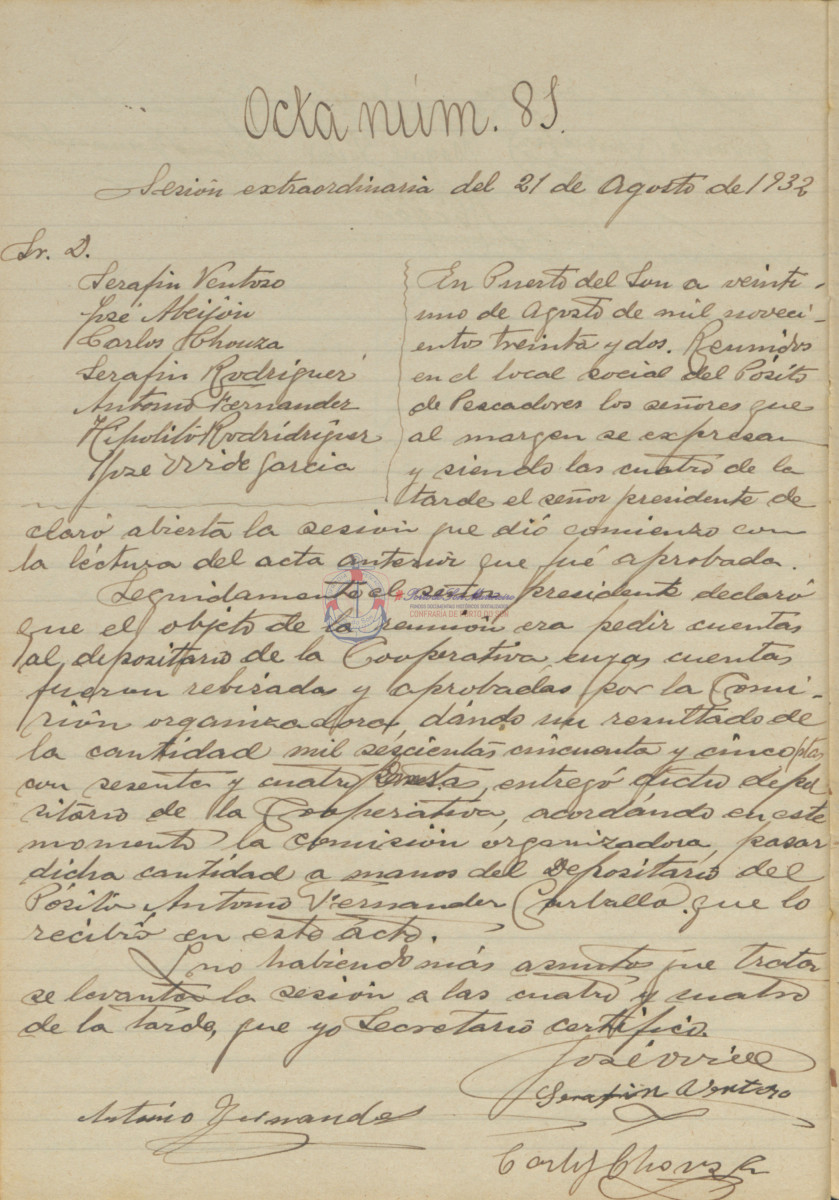 Octa núm. 81.
Sesión extraordinaria del 21 de Agosto de 1932
Sr. D.
Serafin Ventoso
José Abeijón
Carlos Chouza
Serafin Rodríguez
Antonio Fernandez
Hipolito Rodrídriguez
José Ovide Garcia
En Puerto del Son a veinti-
uno de Agosto de mil noveci-
entos treinta y dos. Reunidos
en el local social del Posito
de Pescadores los señores que
al margen se expresan
y siendo las cuatro de la
tarde el señor presidente de
claró abierta la sesion que dió comienzo con
la léctura del acta anterior que fué aprobada.
Seguidamente el señor presidente declaró
que el objeto de la reunión era pedir cuentas
al depositario de la Cooperativa, cuyas cuentas
fueron rebisadas y aprobadas por la Comi-
sión organizadora, dándo un resultado de
la cantidad mil seiscientas cincuenta y cinco ptas
con sesenta y cuatro, entregó dicho depo
sitario de la Cooperativa, acordándo en este
momento la comisión organizadora, pasar
dicha cantidad a manos del Depositario del
Pósito Antonio Fernandez Carballo. que lo
recibió en esto ácto.
Y no habiendo más asuntos que tratar
se levanta la sesión a las cuatro y cuatro
de la tarde, que yo Secretario certifico.
José Ovide
Serafin Ventoso
Antonio Fernandez
Carlos Chouza
CONFRARÍA DE PORTO DO SON